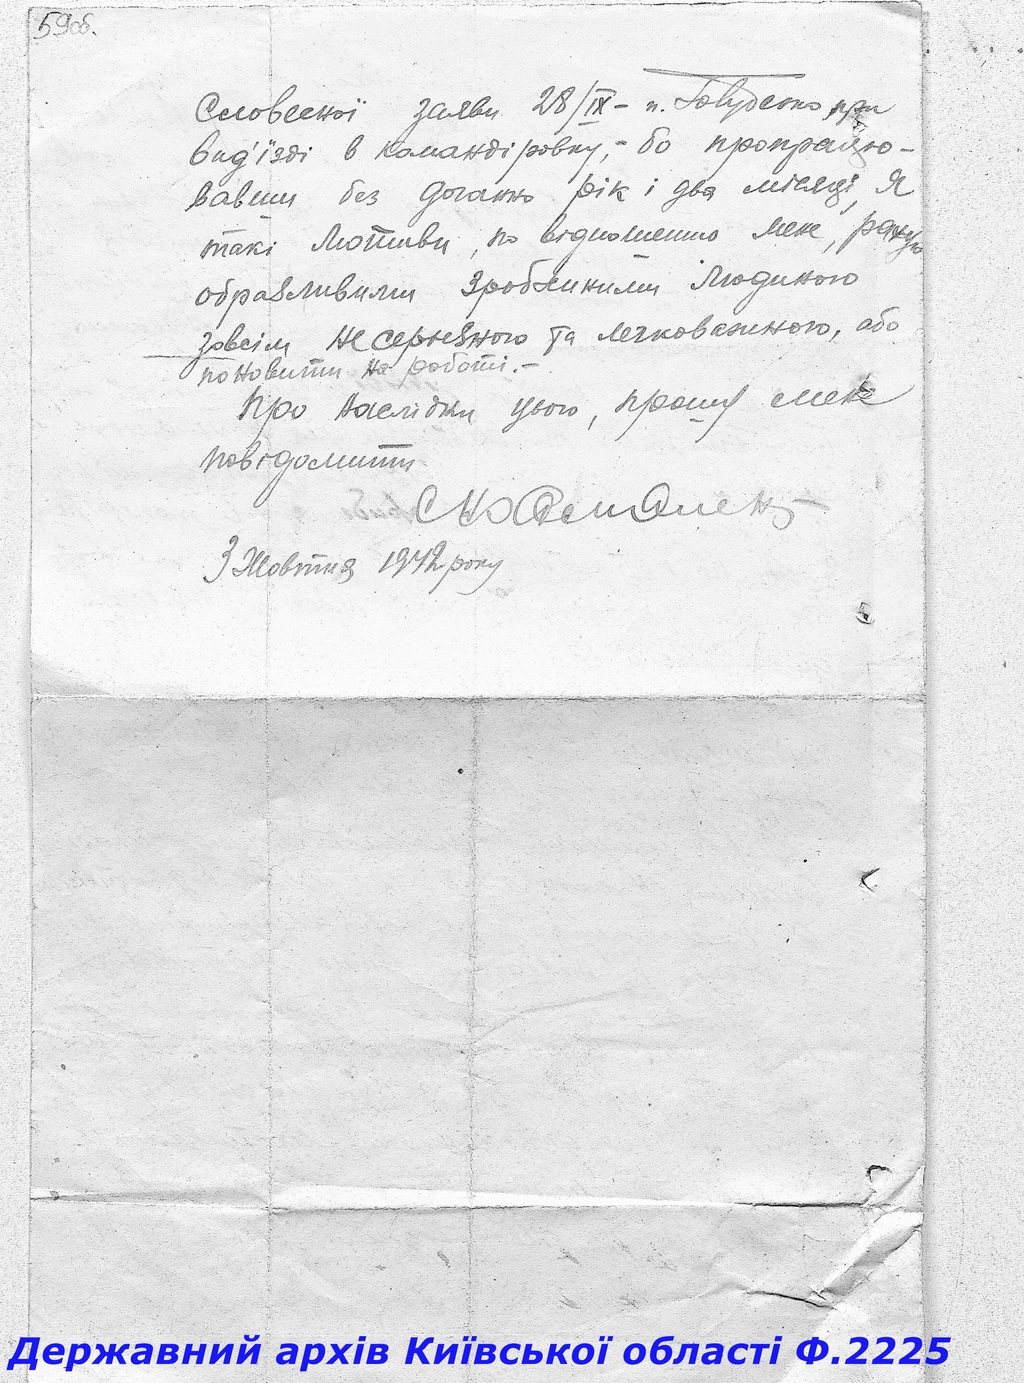 59об.
Словесної заяви 28/IX – п. при
виїзді в командіровку, – бо пропрацю-
вавши без догани рік і два місяці, я
такі мотиви, по відношенню мене,
образливими зробленими людиною
зовсім не серйозного та легковажного, або
поновити на роботі. –
Про наслідки цього, прошу мене
повідомити
3 Жовтня 1942 року
Державний архів Київської області Ф.2225